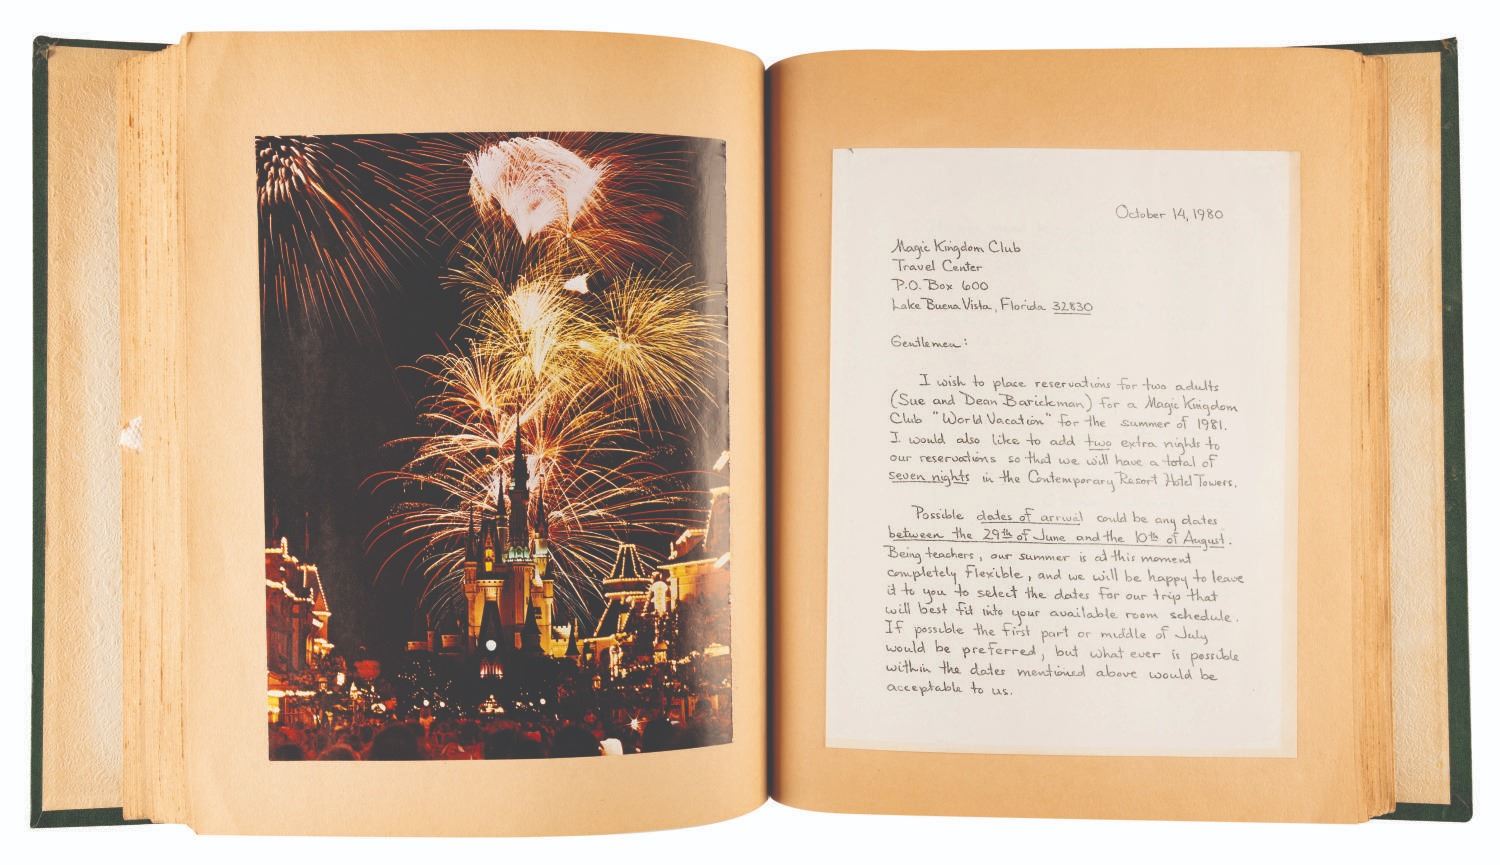 October 14, 1980
Magic Kingdom Club
Travel Center
P.O. Box 600
Lake Buena Vista, Florida 32830
Gentlemen:
I wish to place reservations for two adults
(Sue and Dean Barickman) for a Magic Kingdom
Club "World Vacation" for the summer of 1981.
I would also like to add two extra nights to
our reservations so that we will have a total of
seven nights in the Contemporary Resort Hotel Towers.
Possible dates of arrival could be any dates
between the 29th of June and the 10th of August.
Being teachers, our summer is at this moment
completely flexible, and we will be happy to leave
it to you to select the dates for our trip that
will best fit into your available room schedule.
If possible the first part or middle of July
would be preferred, but what ever is possible
within the dates mentioned above would be
acceptable to us.